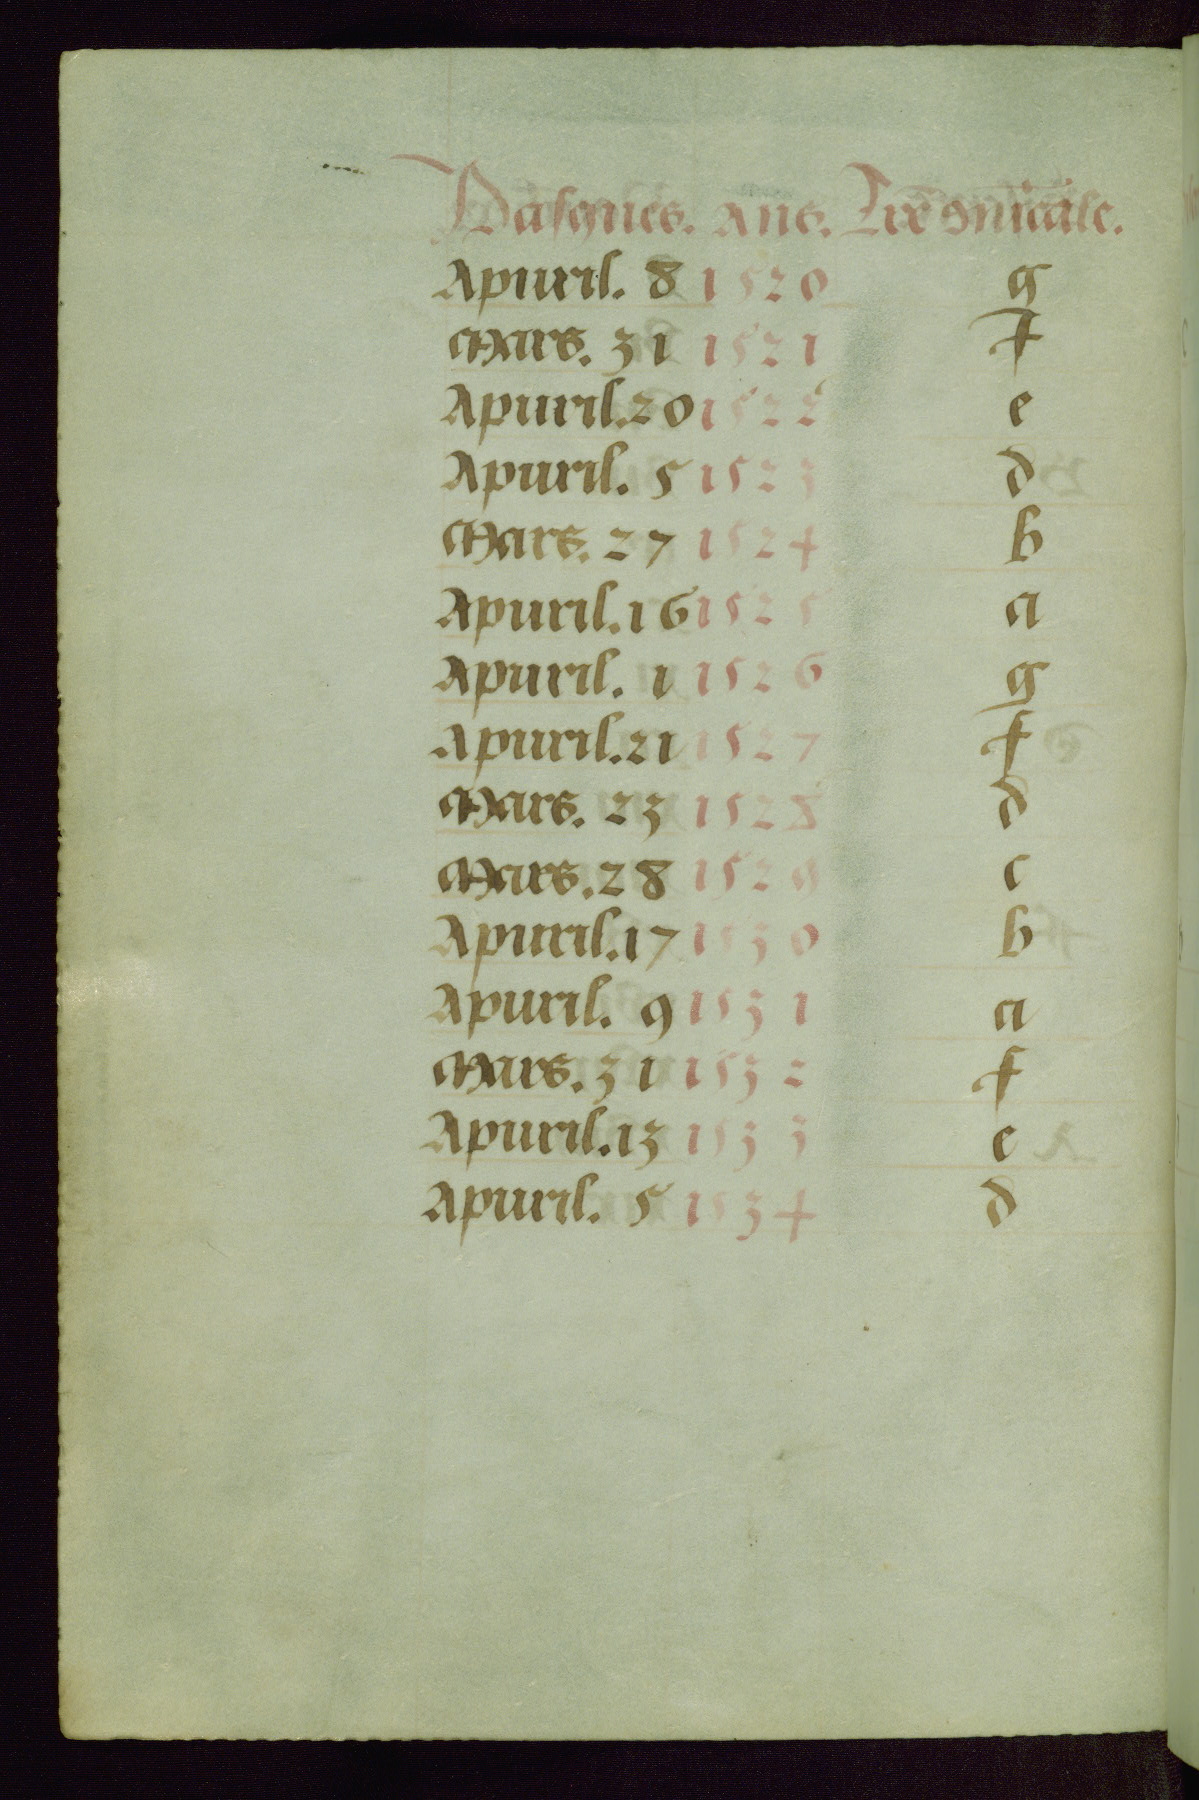 Pasques. Ans. Lrē dnicale.
Apuril. 8 1520 g
Mars. 31 1521 f
Apuril. 20 1522 e
Apuril. 5 1523 d
Mars. 27 1524 b
Apuril. 16 1525 a
Apuril. 1 1526 g
Apuril. 21 1527 f
Mars. 23 1528 d
Mars. 28 1529 c
Apuril. 17 1530 b
Apuril. 9 1531 a
Mars. 31 1532 f
Apuril. 13 1533 e
Apuril. 5 1534 d